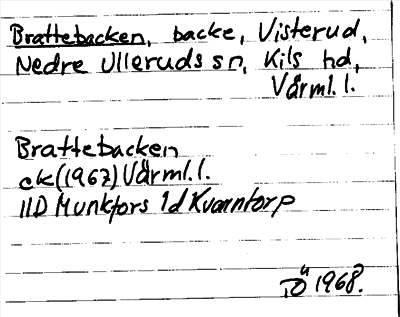 Brattebacken, backe, Visterud,
Nedre Ulleruds sn, Kils hd,
Värml. l.
Brattebacken
ek (1967) Värml. l.
11D Munkfors 1d Kvarntorp
TÖ 1968.